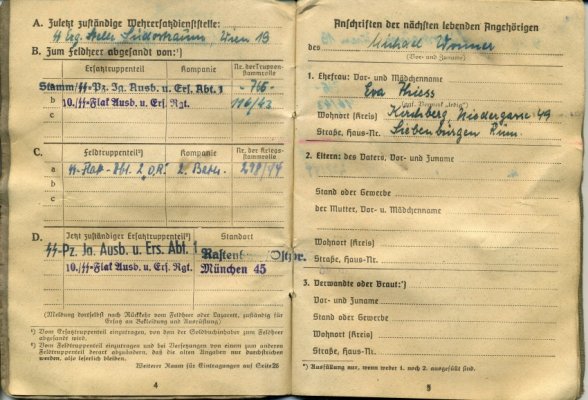 A. Zuletzt zuständige Wehrersatzdienststelle:
Wien 19
B. Zum Feldheer abgesandt von:¹)
Ersatztruppenteil
Kompanie
Nr. der Truppenstammrolle
a Stamm/SS-Pz. Jg. Ausb. u. Ers. Abt. 1 -766-
b 10./SS-Flak Ausb. u. Ers. Rgt. 116/43
c
C.
Feldtruppenteil ²)
Kompanie
Nr. der Kriegsstammrolle
a SS-Flak-Abt. 2 „D.R." 2. Batr. 298/44
b
c
D.
Jetzt zuständiger Ersatztruppenteil²)
Standort
SS-Pz. Jg. Ausb. u. Ers. Abt. 1 Rastenburg Ostpr.
10./SS-Flak Ausb. u. Ers. Rgt. München 45
(Meldung dortselbst nach Rückkehr vom Feldheer oder Lazarett, zuständig für
Ersatz an Bekleidung und Ausrüstung)
¹) Vom Ersatztruppenteil einzutragen, von dem der Soldbuchinhaber zum Feldheer
abgesandt wird.
²) Vom Feldtruppenteil einzutragen und bei Versetzungen von einem zum anderen
Feldtruppenteil derart abzuändern, daß die alten Angaben nur durchstrichen
werden, also leserlich bleiben.
Weiterer Raum für Eintragungen auf Seite 26
4
Anschriften der nächsten lebenden Angehörigen
des Michael
(Vor- und Zuname)
1. Ehefrau: Vor- und Mädchenname
Eva Thiess
(ggf. Vermerk „ledig")
Wohnort (Kreis) Kirchberg, Niedergasse 49
Straße, Haus-Nr. Siebenbürgen Rum.
2. Eltern: des Vaters, Vor- und Zuname
Stand oder Gewerbe
der Mutter, Vor- u. Mädchenname
Wohnort (Kreis)
Straße, Haus-Nr.
3. Verwandte oder Braut:*)
Vor- und Zuname
Stand oder Gewerbe
Wohnort (Kreis)
Straße, Haus-Nr.
*) Ausfüllung nur, wenn weder 1. noch 2. ausgefüllt sind.
5